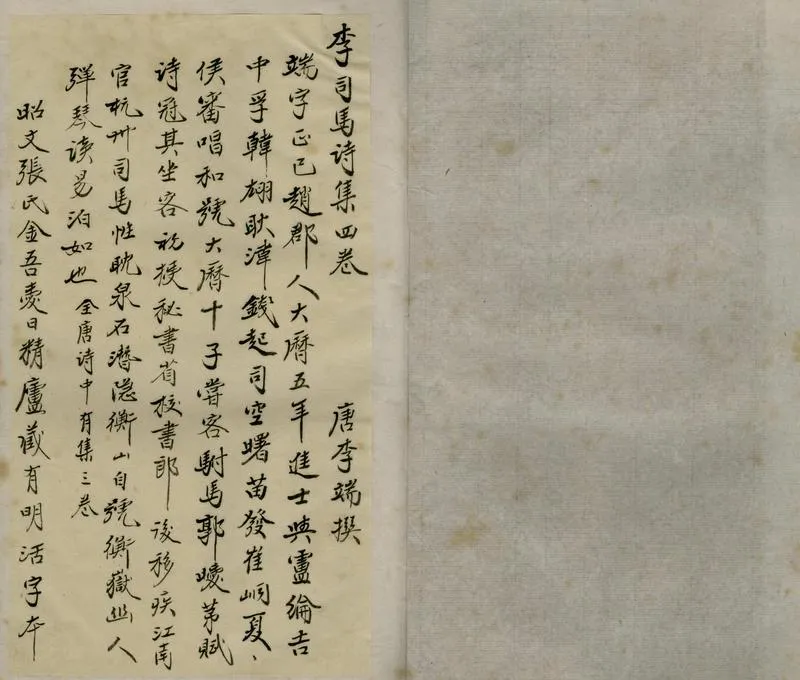 李司馬詩集四卷 唐李端撰
端字正已趙郡人大曆五年進士與盧綸吉
中孚韓翃耿湋錢起司空曙苗發崔峒夏
侯審唱和號大曆十子嘗客駙馬郭曖第賦
詩冠其坐客初授秘書省校書郎後移疾江南
官杭州司馬性耽泉石潛隱衡山自號衡嶽幽人
弹琴读易泊如也 全唐诗中有集三卷
昭文張氏金吾愛日精廬藏有明活字本